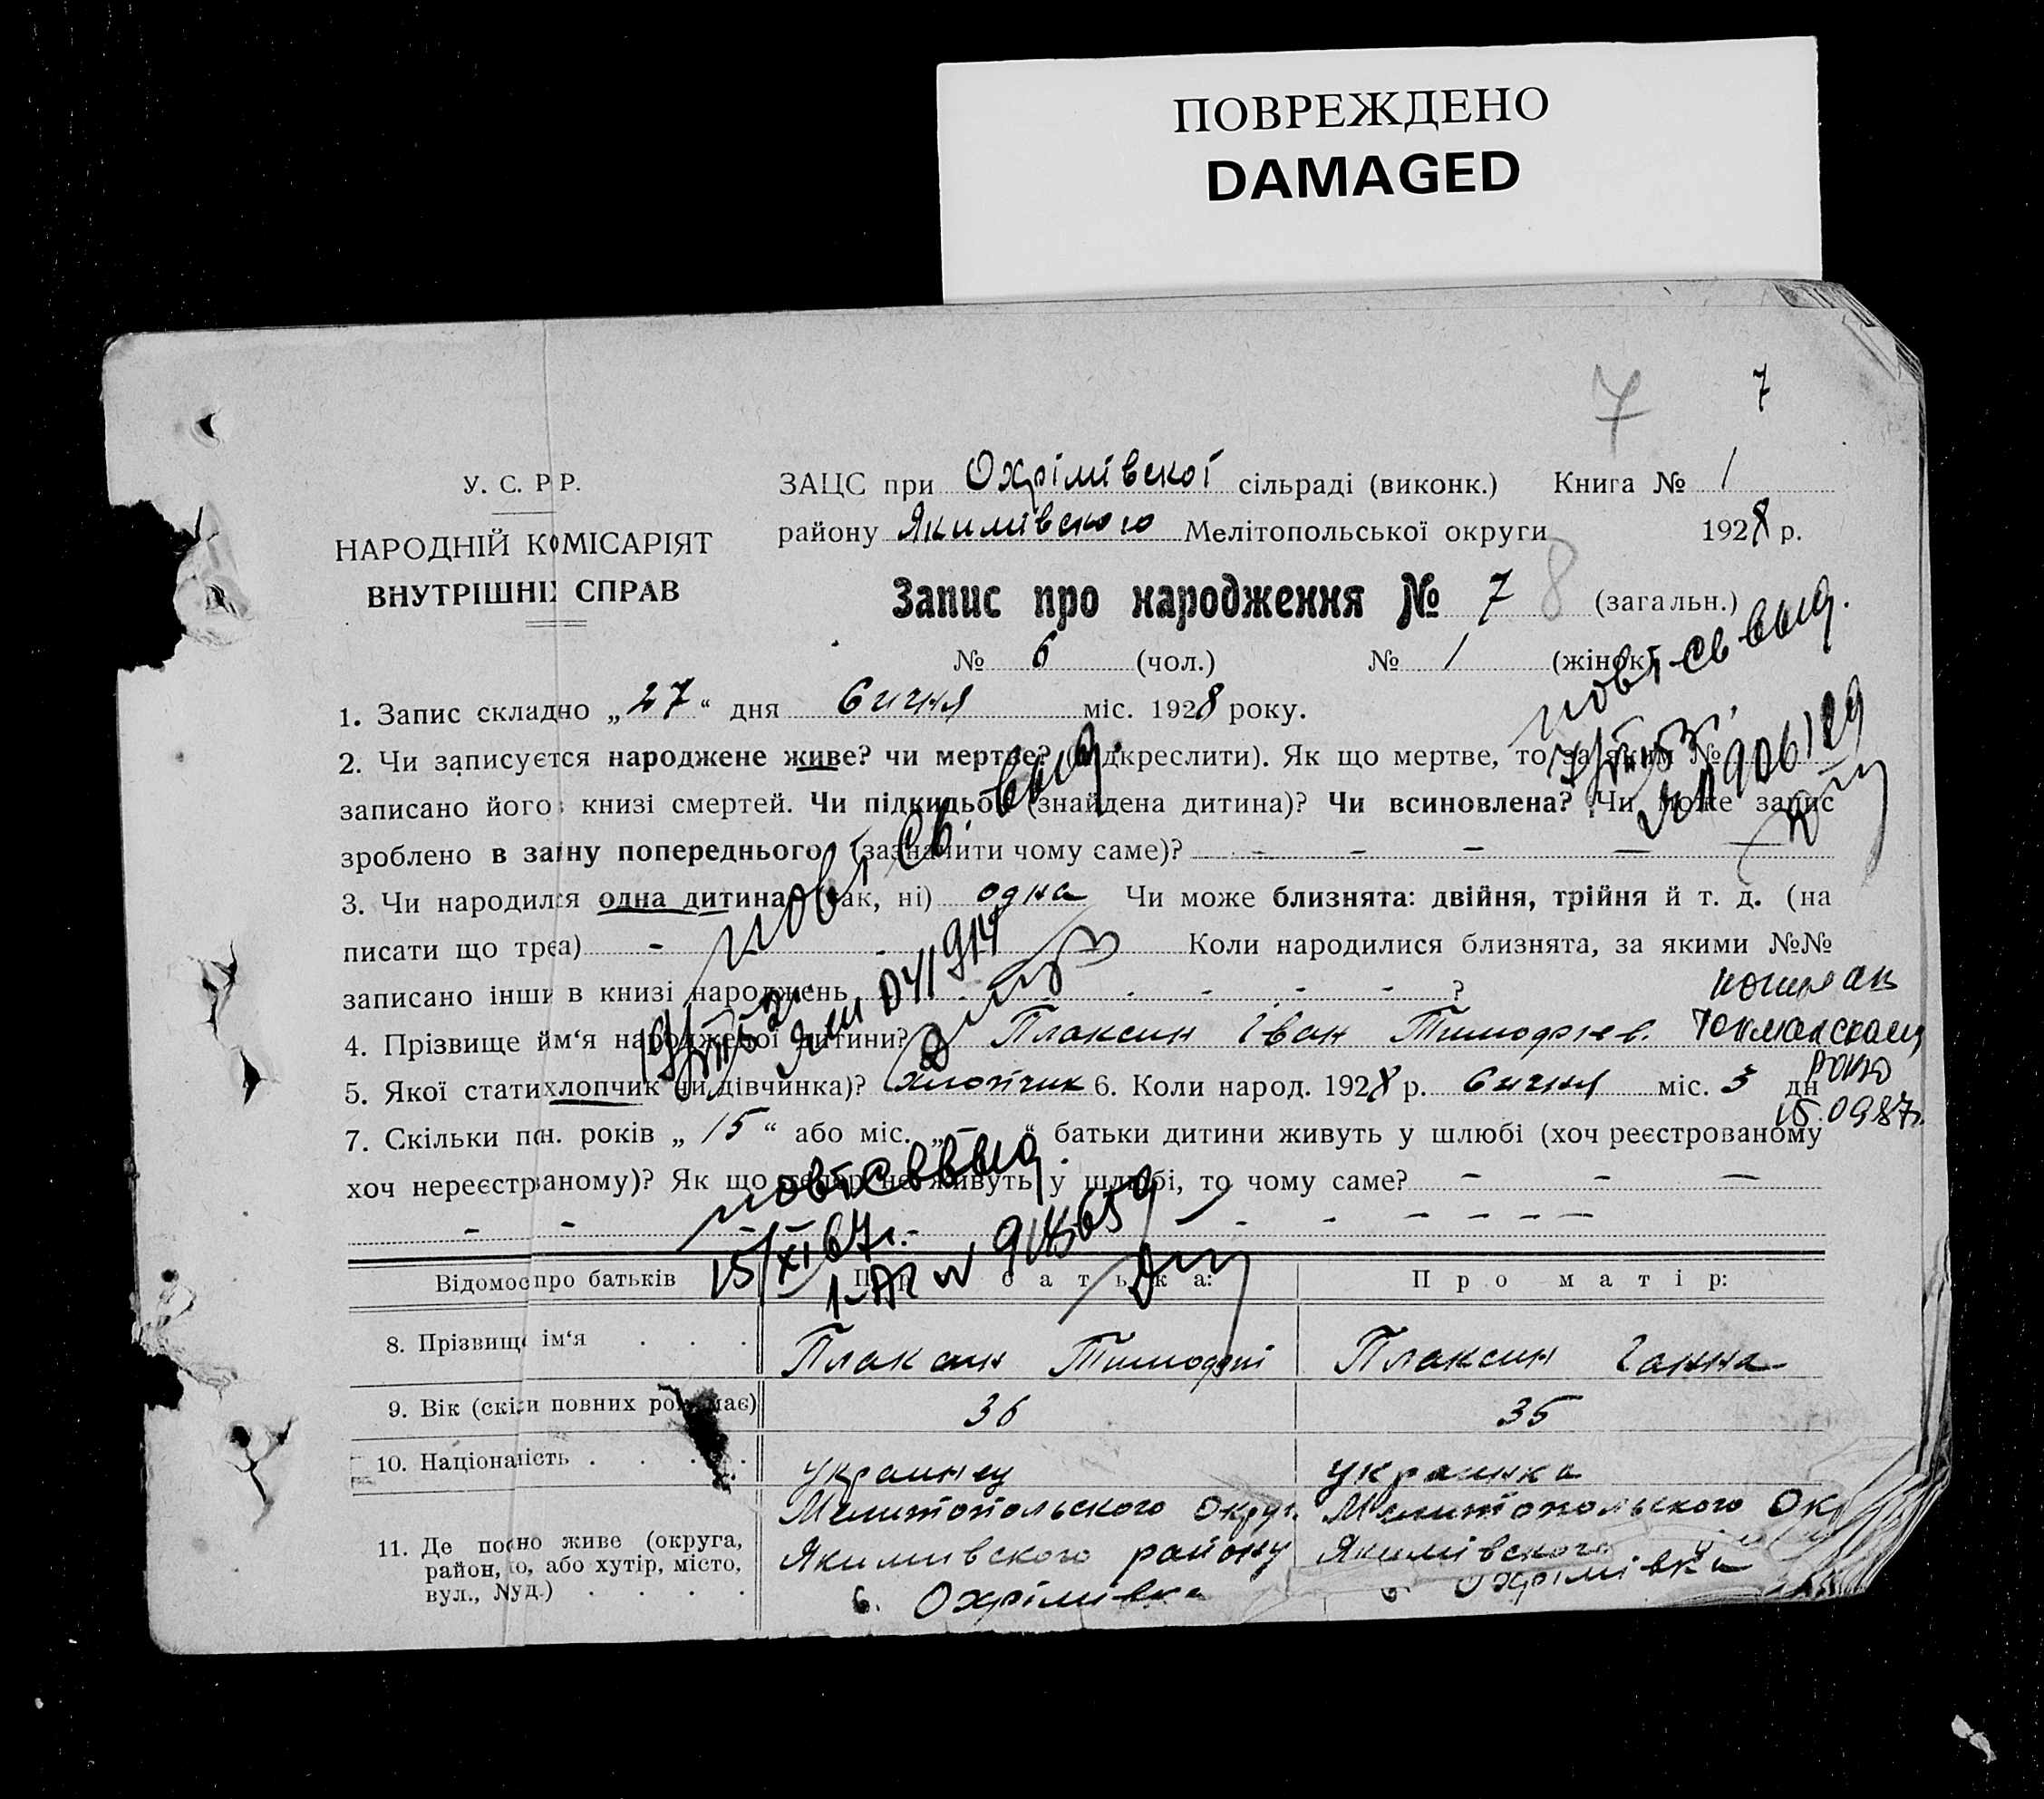 ПОВРЕЖДЕНО
DAMAGED
7 7
У. С. Р Р.
НАРОДНІЙ КОМІСАРІЯТ
ВНУТРІШНІ СПРАВ
ЗАЦС при Охрімівскої сільраді (виконк.) Книга № 1
району Якимівского Мелітопольської округи 1928 р.
Запис про народження № 7 8 (загальн.)
№ 6 (чол.) № 1 (жінок)
повт св выд.
1. Запис складно „27“ дня Січня міс. 1928 року.
2. Чи записуєтся народжене живе? чи мертве? (підкреслити). Як що мертве, то за яким №
906129
записано його книзі смертей. Чи підкидьо (знайдена дитина)? Чи всиновлена? Чи може запис
зроблено в заіну попереднього (зазначити чому саме)? – – – – –
повт св. выд.
3. Чи народилзя одна дитина (так, ні) одна Чи може близнята: двійня, трійня й т. д. (на
писати що трєа) - - Коли народилися близнята, за якими №№
041914
записано інши в книзі народжень - - - - ?
4. Прізвище йм‘я народженої дитини? Плаксин Іван Тимофіев.
Токмакского
РОВД
15.09.87г.
5. Якої стати хлопчик чи дівчинка)? хлопчик 6. Коли народ. 1928 р. Січня міс. 3 дн
7. Скільки пон. років „15“ або міс. „–“ батьки дитини живуть у шлюбі (хоч реєстрованому
хоч нереєстрваному)? Як що тепер не живуть у шлюбі, то чому саме? – – –
повт св выд.
15/XI 67г.
№ 918659
Відомос про батьків Про батька: Про матір:
8. Прізвище ім‘я . . . Плаксин Тимофій Плаксин Ганна
9. Вік (скіли повних рок має) 36 35
10. Національність . . . . украинец украинка
11. Де посно живе (округа,
район, о, або хутір, місто,
вул., Nуд.) . . . .
Мелитопольского Округ. Мелитопольского Ок
Якимивского району Якимівского
с. Охрімівка с. Охрімівка